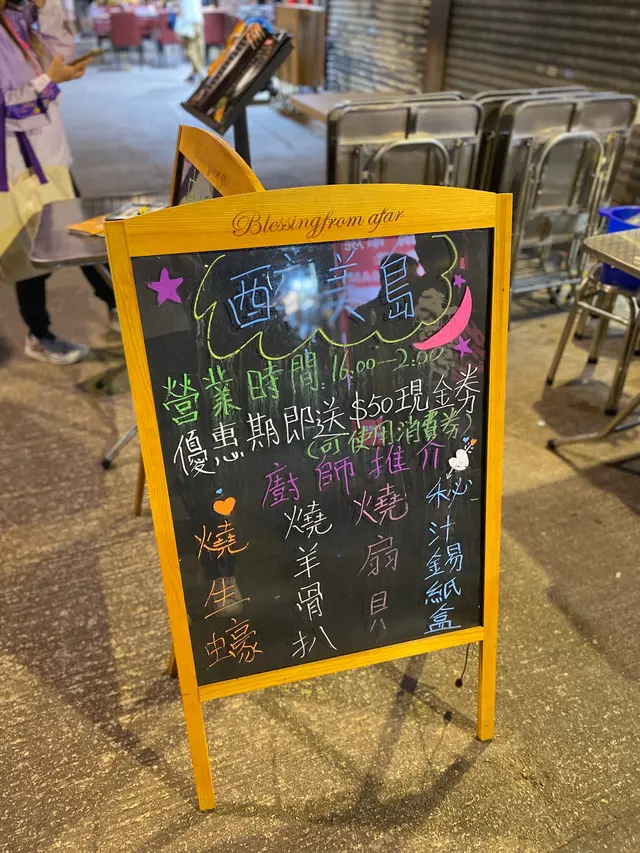 Blessing from afar
醉美島
營業時間:16:00-2:00
優惠期即送$50現金券
(可使用消費券)
廚師推介
燒生蠔
燒羊骨扒
燒扇貝
秘汁錫紙盒